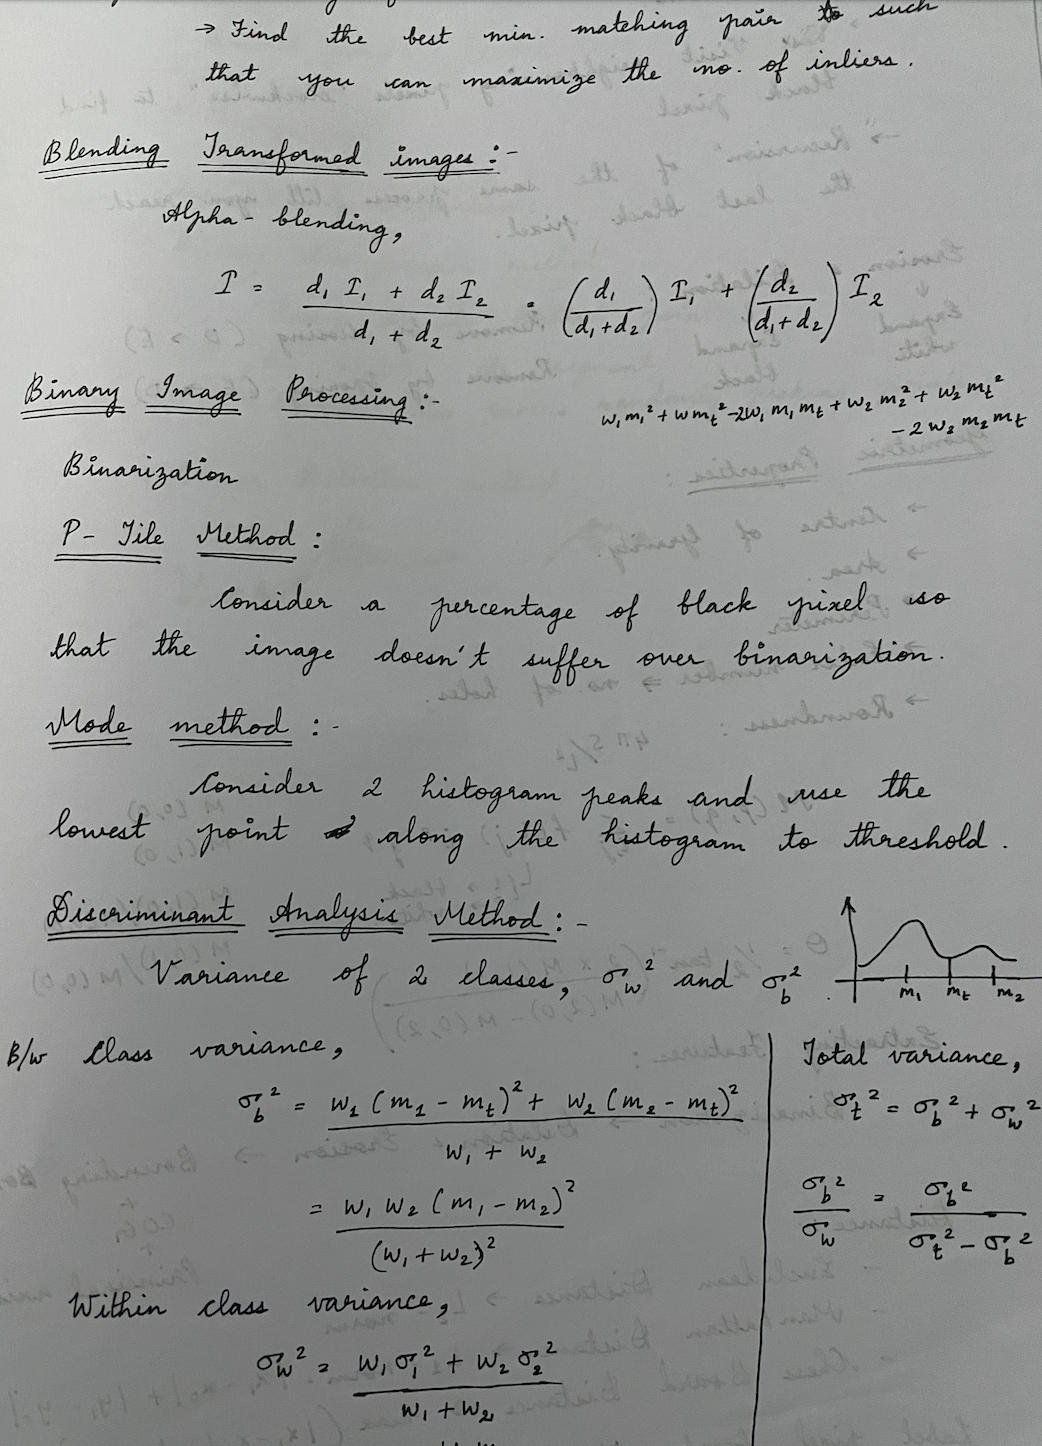 → Find the best min. matching pair to such
that you can maximize the no. of inliers.
Blending Transformed images :-
Alpha-blending,
I = (d₁ I₁ + d₂ I₂) / (d₁ + d₂) = (d₁ / (d₁+d₂)) I₁ + (d₂ / (d₁+d₂)) I₂
Binary Image Processing :-
w₁m₁² + wm_t² - 2w₁m₁m_t + w₂m₂² + w₂m_t²
- 2w₂m₂m_t
Binarization
P- Tile Method :
Consider a percentage of black pixel so
that the image doesn't suffer over binarization.
Mode method :-
Consider 2 histogram peaks and use the
lowest point along the histogram to threshold.
Discriminant Analysis Method :-
Variance of 2 classes, σ_w² and σ_b².
m₁ m_t m₂
B/w Class variance,
σ_b² = (w₁(m₁ - m_t)² + w₂(m₂ - m_t)²) / (w₁ + w₂)
= w₁w₂(m₁ - m₂)² / (w₁+w₂)²
Within class variance,
σ_w² = (w₁σ₁² + w₂σ₂²) / (w₁+w₂)
Total variance,
σ_t² = σ_b² + σ_w²
σ_b² / σ_w = σ_b² / (σ_t² - σ_b²)